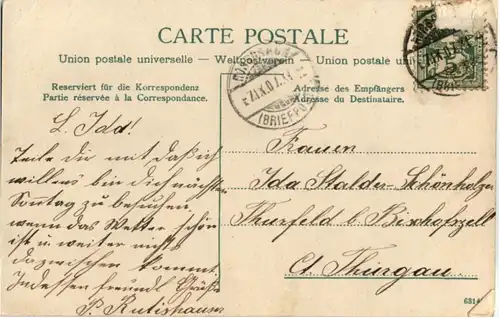 CARTE POSTALE
Union postale universelle — Weltpostverein — Union postale universelle
Reserviert für die Korrespondenz
Partie réservée à la Correspondance.
Adresse des Empfängers
Adresse du Destinataire.
L. Ida!
Teile dir mit daß ich
willens bin dich nächsten
Sonntag zu besuchen
wenn das Wetter schön
ist u weiter nichts
dazwischen kommt.
Indessen freundl. Grüße
P. Rutishauser
Frauen
Ida Stalder-Schönholzer
Thurfeld b Bischofzell
Ct. Thurgau
(BRIEFPO